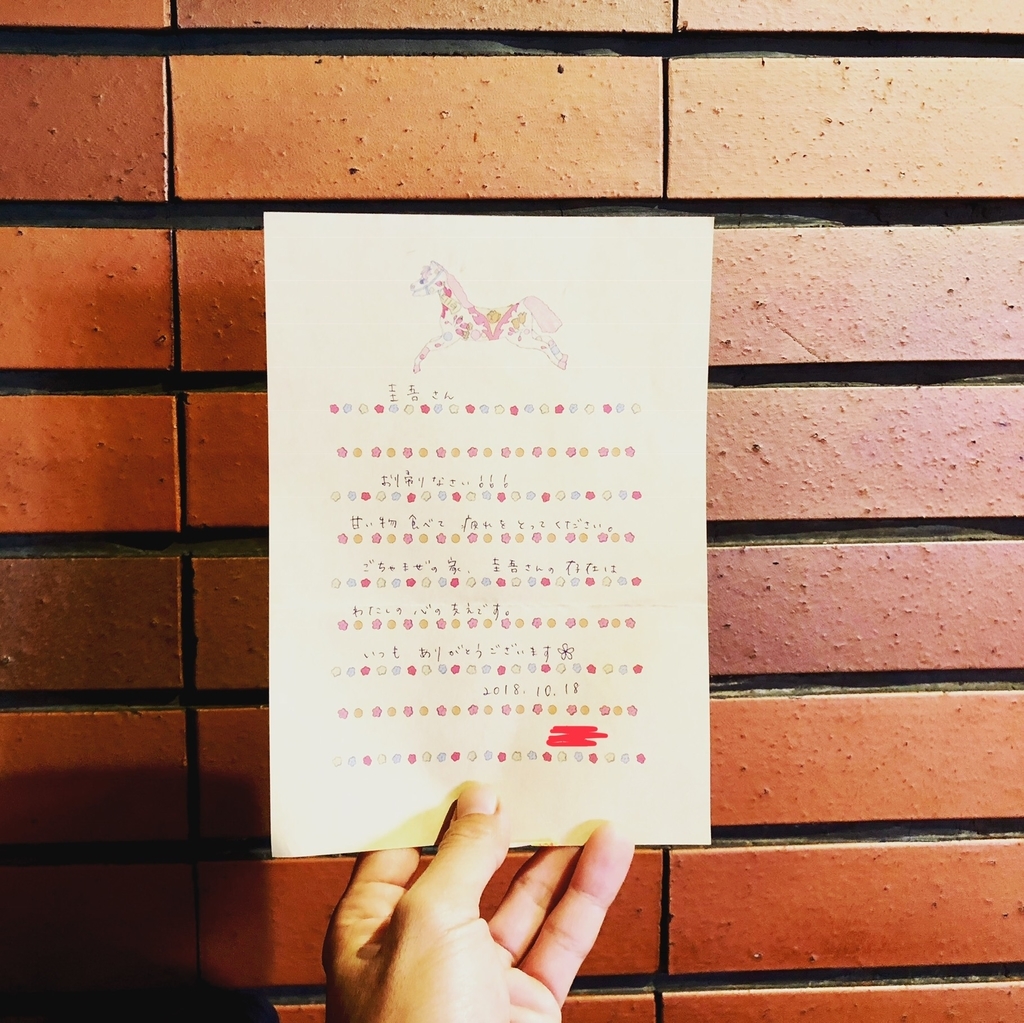 圭吾さん
お帰りなさい!!!
甘い物食べて 疲れをとってください。
ごちゃまぜの家、圭吾さんの存在は
わたしの心の支えです。
いつも ありがとうございます
2018.10.18